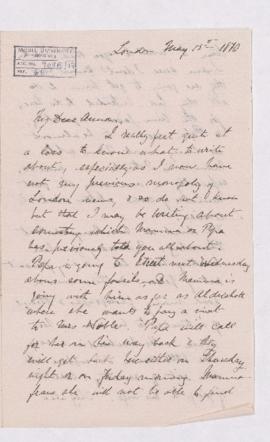 London May 15th 1870
My Dear Annan,
I really feel quite at
a loss to know what to write
about, especially as I now have
not my previous monopoly of
London news, & so do not know
but that I may be writing about
something which Mamma or Papa
has previously told you all about.
Papa is going to Street next Wednesday
about some fossils and Mamma is
going with him as far as Aldershot
where she wants to pay a visit
to Mrs Noble. Papa will call
for her on his way back & they
will get back here either on Thursday
night or on Friday morning. Mamma
fears she will not be able to find